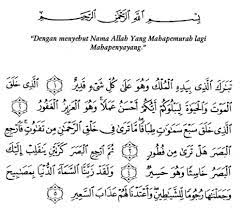 بِسْمِ اللَّهِ الرَّحْمَٰنِ الرَّحِيمِ
"Dengan menyebut Nama Allah Yang Mahapemurah lagi
Mahapenyayang."
تَبَٰرَكَ الَّذِي بِيَدِهِ الْمُلْكُ وَهُوَ عَلَىٰ كُلِّ شَيْءٍ قَدِيرٌ ۝ الَّذِي خَلَقَ
الْمَوْتَ وَالْحَيَوٰةَ لِيَبْلُوَكُمْ أَيُّكُمْ أَحْسَنُ عَمَلًا وَهُوَ الْعَزِيزُ الْغَفُورُ ۝
الَّذِي خَلَقَ سَبْعَ سَمَٰوَٰتٍ طِبَاقًا مَّا تَرَىٰ فِي خَلْقِ الرَّحْمَٰنِ مِن تَفَٰوُتٍ فَارْجِعِ
الْبَصَرَ هَلْ تَرَىٰ مِن فُطُورٍ ۝ ثُمَّ ارْجِعِ الْبَصَرَ كَرَّتَيْنِ يَنقَلِبْ إِلَيْكَ
الْبَصَرُ خَاسِئًا وَهُوَ حَسِيرٌ ۝ وَلَقَدْ زَيَّنَّا السَّمَاءَ الدُّنْيَا بِمَصَٰبِيحَ
وَجَعَلْنَٰهَا رُجُومًا لِّلشَّيَٰطِينِ وَأَعْتَدْنَا لَهُمْ عَذَابَ السَّعِيرِ ۝